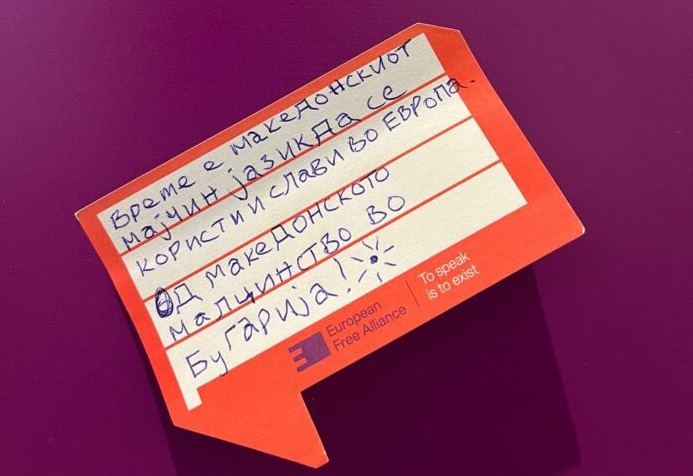 Време е македонскиот
мајчин јазик да се
користи и слави во Европа.
Од македонското
малцинство во
Бугарија!
European
Free Alliance
To speak
is to exist